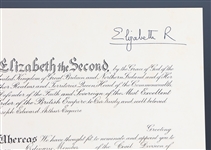 Elizabeth R
Elizabeth the Second, by the Grace of God of the
United Kingdom of Great Britain and Northern Ireland and of Her
Other Realms and Territories Queen, Head of the Commonwealth,
Defender of the Faith and Sovereign of the Most Excellent
Order of the British Empire to Our trusty and well beloved
Joseph Edward Arthur Esquire
Greeting
Whereas We have thought fit to nominate and appoint you to
Ordinary Member of the Civil Division of